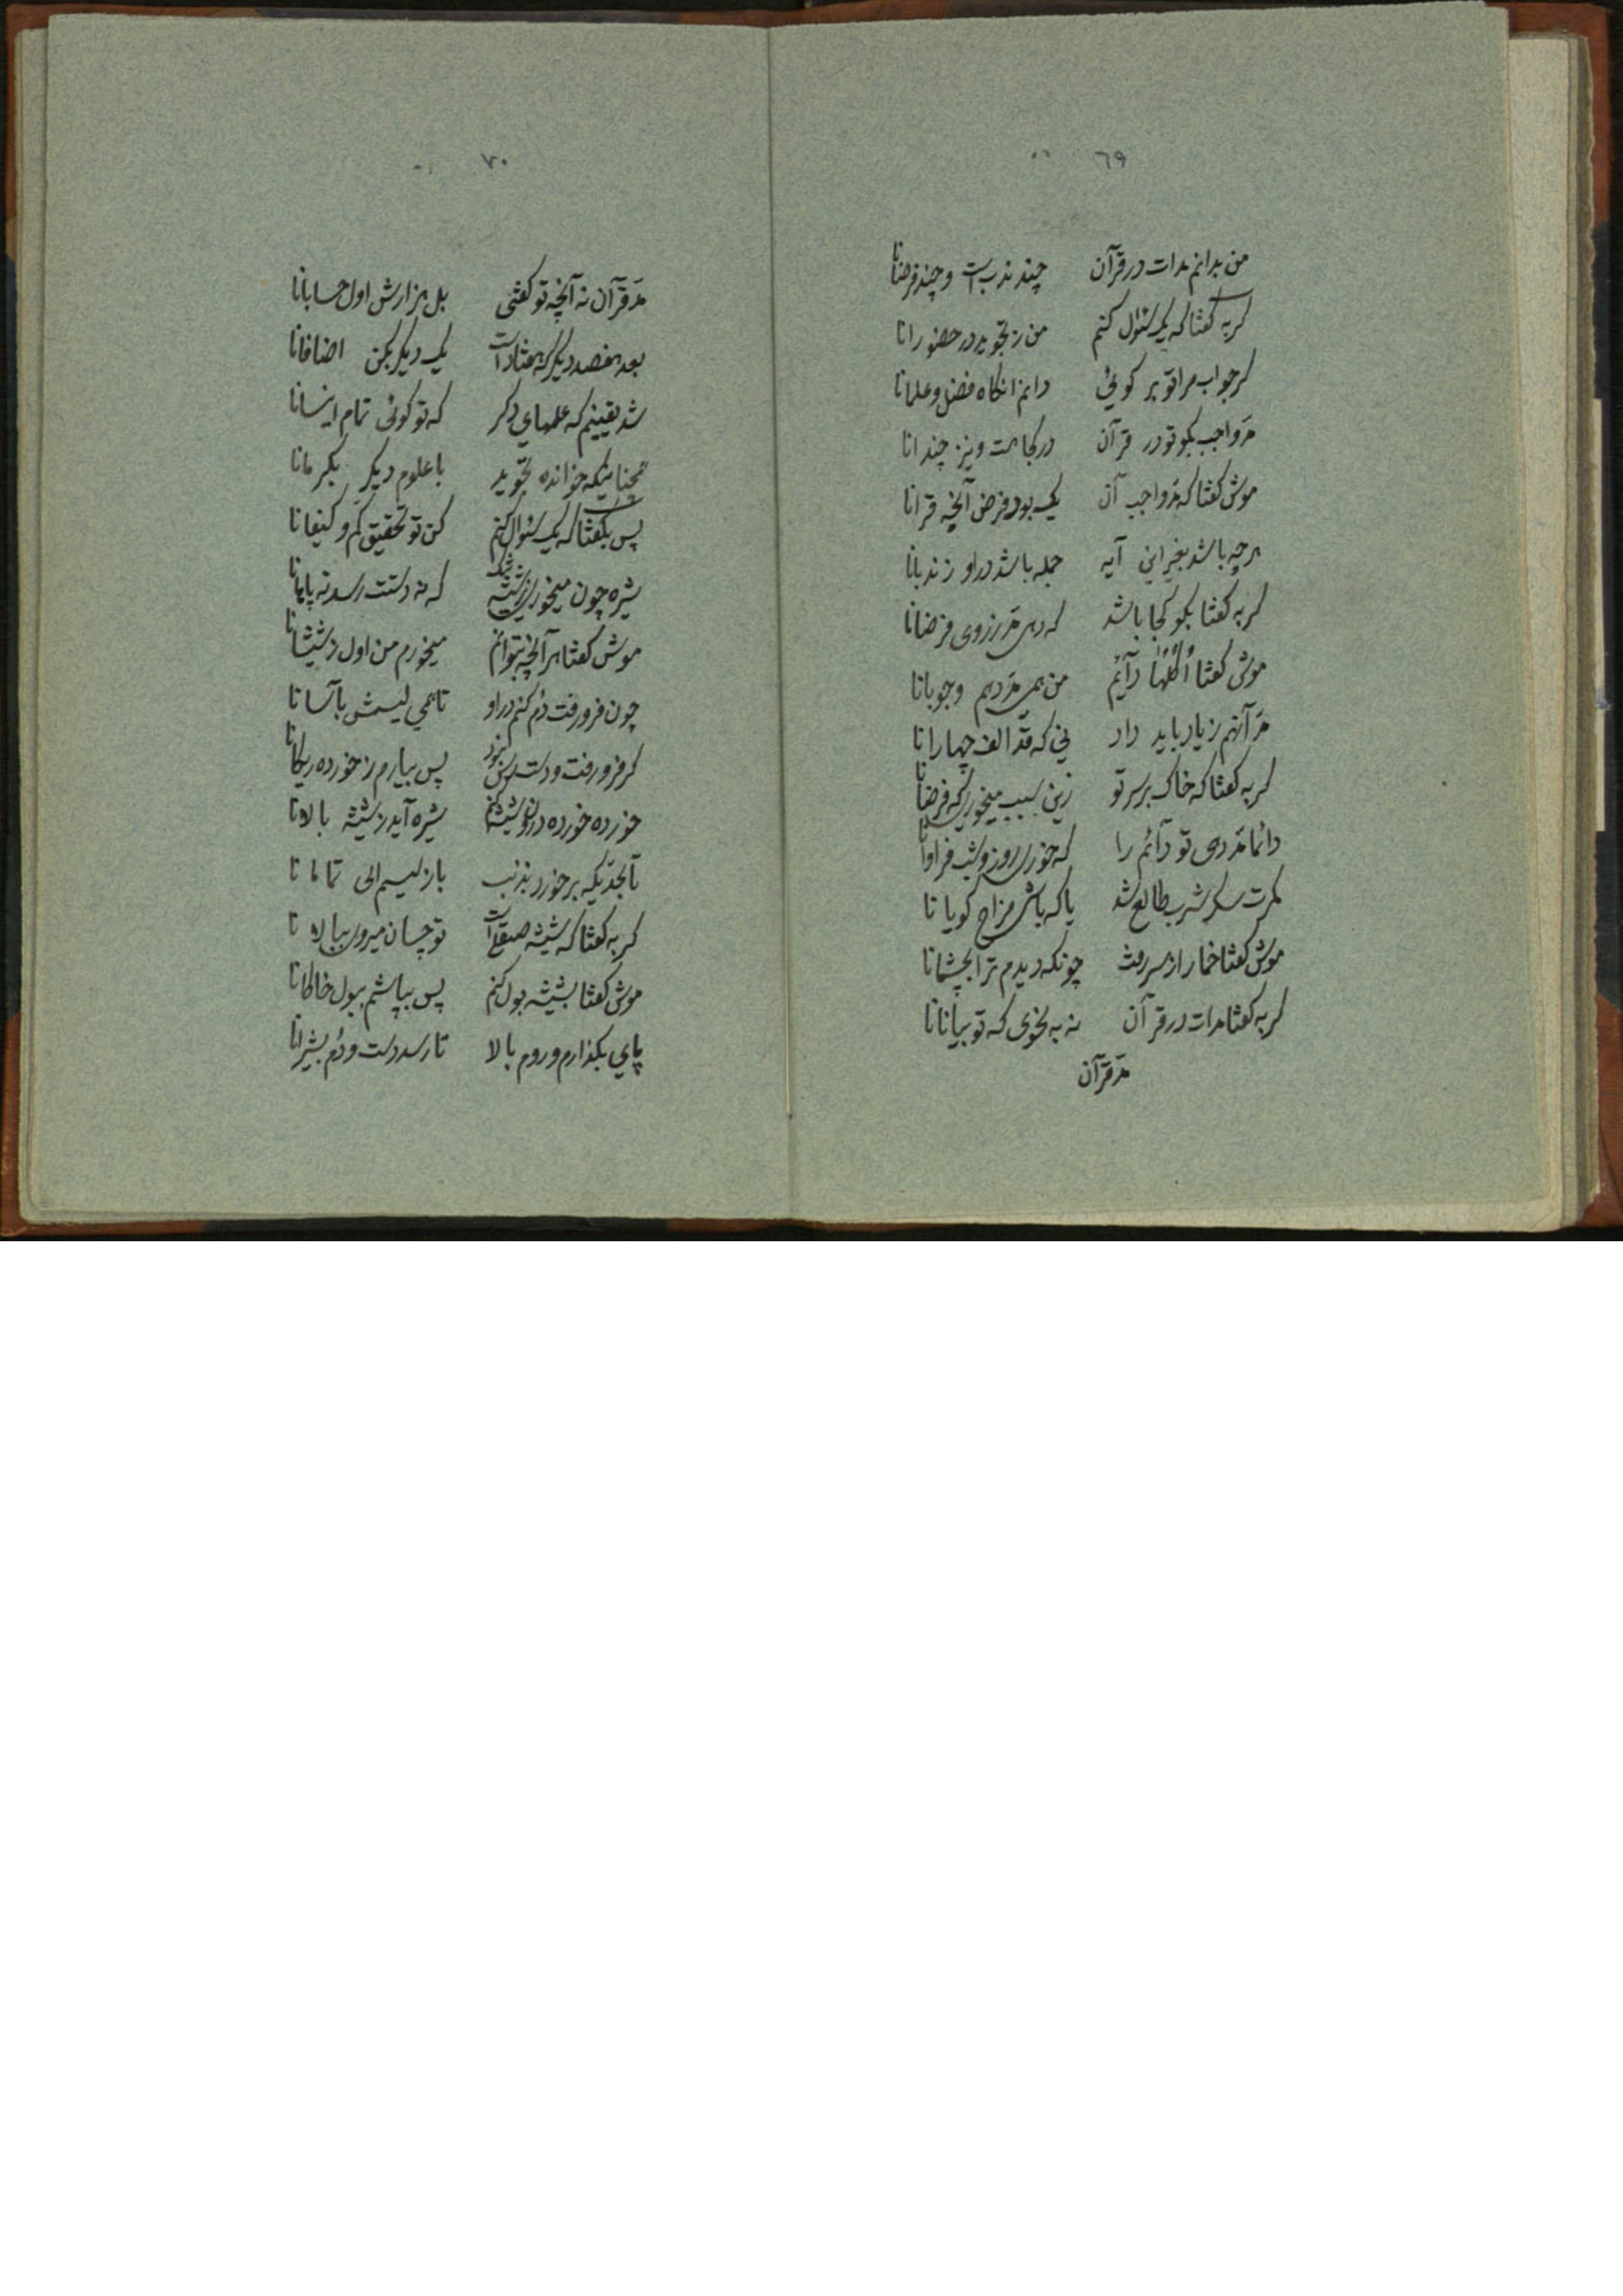 ٦٩
من بدانم مدات در قرآن چند ندب است و چند فرضانا
گربه گفتا که یک سئوال کنم من ز تجوید در حضورانا
گر جواب مرا تو بر گوئی دانم انگاه فضل و علمانا
مدّ واجب بگو تو در قرآن در کجا هست و نیز چندانا
موش گفتا که مدّ واجب آن یک بود فرض آنچه قرانا
هرچه باشد بغیر این آیه جمله باشد در او ز ندبانا
گربه گفتا بگو کجا باشد که دهی مدّ ز روی فرضانا
موش گفتا اُکُلُها دآئم من همی مدّ دهم وجوبانا
مدّ آنهم زیاد باید داد نی که قدّ الف چهارانا
گربه گفتا که خاک بر سر تو زین سبب میخوری که فرضانا
دائما مدّ دهی تو دآئم را که خوری روز و شب فراوانا
مرت سکر شرب طالع شد یا که باشی مزاح گویانا
موش گفتا خمار از سر رفت چونکه دیدم ترا بچشمانا
گربه گفتا مدات در قرآن نه به نحوی که تو بیانانا
مدّ قرآن
٧٠
مدّ قرآن نه آنچه تو گفتی بل هزارش اول حسابانا
بعد هفصد دیگر که هفتاد است یک دیگر بکن اضافانا
شد یقینم که علمهای دگر که تو گوئی تمام اینسانا
همچنانیکه خوانده تجوید با علوم دیگر بکرمانا
پس بگفتا که یک سئوال کنم کن تو تحقیق کم و کیفانا
شیره چون میخوری ز شیشه که نه دستت رسد نه پایانا
موش گفتا هر آنچه بتوانم میخورم من اول ز شیشانا
چون فرو رفت دُم کنم در او تا همی لیسمش بآسانا
گر فرو رفت و دسترس نبود پس بیارم ز خورده ریگانا
خورده خورده درون شیشه کنم شیره آید ز شیشه بالانا
تا بحدّیکه بر خورد بذنب باز لیسم الی تمامانا
گربه گفتا که شیشه صیقل است تو چسان میروی ببالانا
موش گفتا بشیشه بول کنم پس بپاشم ببول خاکانا
پای بگذارم و روم بالا تا رسد دست و دُم بشیرانا